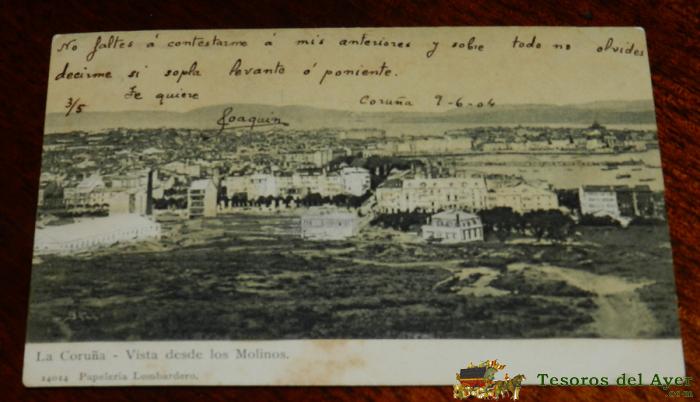 No faltes á contestarme á mis anteriores y sobre todo no olvides
decirme si sopla levante ó poniente.
3/5 Te quiere Coruña 9-6-04
Joaquin
La Coruña - Vista desde los Molinos.
14014 Papelería Lombardero.
Tesoros del Ayer
.com